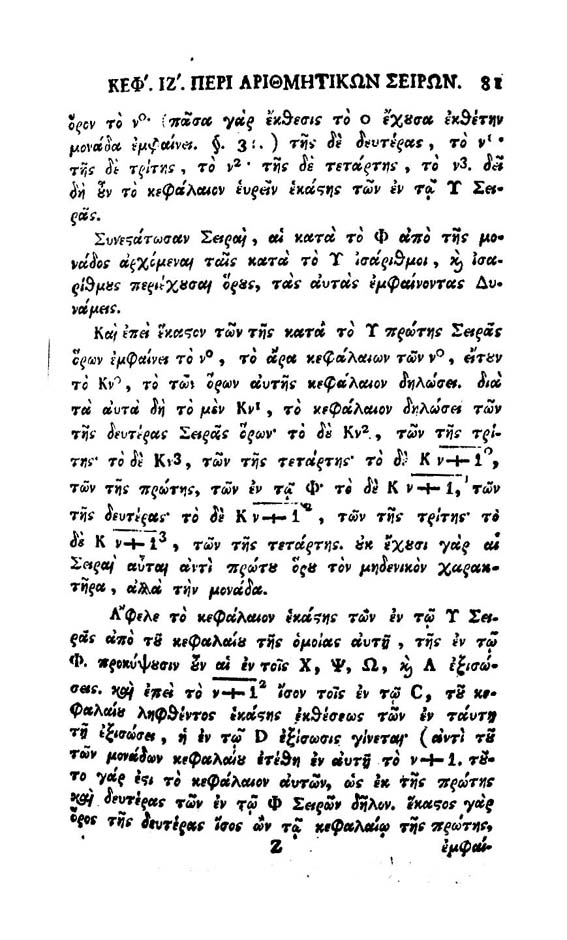 ΚΕΦ´. ΙΖ´. ΠΕΡΙ ΑΡΙΘΜΗΤΙΚΩΝ ΣΕΙΡΩΝ. 81
ὅρον τὸ ν⁰· (πᾶσα γὰρ ἔκθεσις τὸ 0 ἔχουσα ἐκθέτην
μονάδα ἐμφαίνει. §. 31.) τῆς δὲ δευτέρας, τὸ ν¹·
τῆς δὲ τρίτης, τὸ ν²· τῆς δὲ τετάρτης, τὸ ν³. δεῖ
δὴ οὖν τὸ κεφάλαιον εὑρεῖν ἑκάστης τῶν ἐν τῷ Υ Σει-
ρᾶς.
Συνεστάτωσαν Σειραὶ, αἱ κατὰ τὸ Φ ἀπὸ τῆς μο-
νάδος ἀρχόμεναι ταῖς κατὰ τὸ Υ ἰσάριθμοι, καὶ ἰσα-
ρίθμους περιέχουσαι ὅρους, τὰς αὐτὰς ἐμφαίνοντας Δυ-
νάμεις.
Καὶ ἐπεὶ ἕκαστον τῶν τῆς κατὰ τὸ Υ πρώτης Σειρᾶς
ὅρων ἐμφαίνει τὸ ν⁰, τὸ ἄρα κεφάλαιων τῶν ν⁰, εἴτουν
τὸ Κν⁰, τὸ τῶν ὅρων αὐτῆς κεφάλαιον δηλώσει. διὰ
τὰ αὐτὰ δὴ τὸ μὲν Κν¹, τὸ κεφάλαιον δηλώσει τῶν
τῆς δευτέρας Σειρᾶς ὅρων· τὸ δὲ Κν², τῶν τῆς τρί-
της· τὸ δὲ Κν³, τῶν τῆς τετάρτης· τὸ δὲ Κ ν+1⁰,
τῶν τῆς πρώτης, τῶν ἐν τῷ Φ· τὸ δὲ Κ ν+1,¹ τῶν
τῆς δευτέρας· τὸ δὲ Κ ν+1², τῶν τῆς τρίτης· τὸ
δὲ Κ ν+1³, τῶν τῆς τετάρτης. οὐκ ἔχουσι γὰρ αἱ
Σειραὶ αὗται ἀντὶ πρώτου ὅρου τὸν μηδενικὸν χαρακ-
τῆρα, ἀλλὰ τὴν μονάδα.
Ἄφελε τὸ κεφάλαιον ἑκάστης τῶν ἐν τῷ Υ Σει-
ρᾶς ἀπὸ τοῦ κεφαλαίου τῆς ὁμοίας αὐτῇ, τῆς ἐν τῷ
Φ. προκύψουσιν οὖν αἱ ἐν τοῖς Χ, Ψ, Ω, καὶ Α ἐξισώ-
σεις. καὶ ἐπεὶ τὸ ν+1² ἴσον τοῖς ἐν τῷ C, τοῦ κε-
φαλαίου ληφθέντος ἑκάστης ἐκθέσεως τῶν ἐν ταύτῃ
τῇ ἐξισώσει, ἡ ἐν τῷ D ἐξίσωσις γίνεται (ἀντὶ τοῦ
τῶν μονάδων κεφαλαίου ἐτέθη ἐν αὐτῇ τὸ ν+1. τοῦ-
το γάρ ἐστι τὸ κεφάλαιον αὐτῶν, ὡς ἐκ τῆς πρώτης
καὶ δευτέρας τῶν ἐν τῷ Φ Σειρῶν δῆλον. ἕκαστος γὰρ
ὅρος τῆς δευτέρας ἴσος ὢν τῷ κεφαλαίῳ τῆς πρώτης,
Z ἐμφαί-